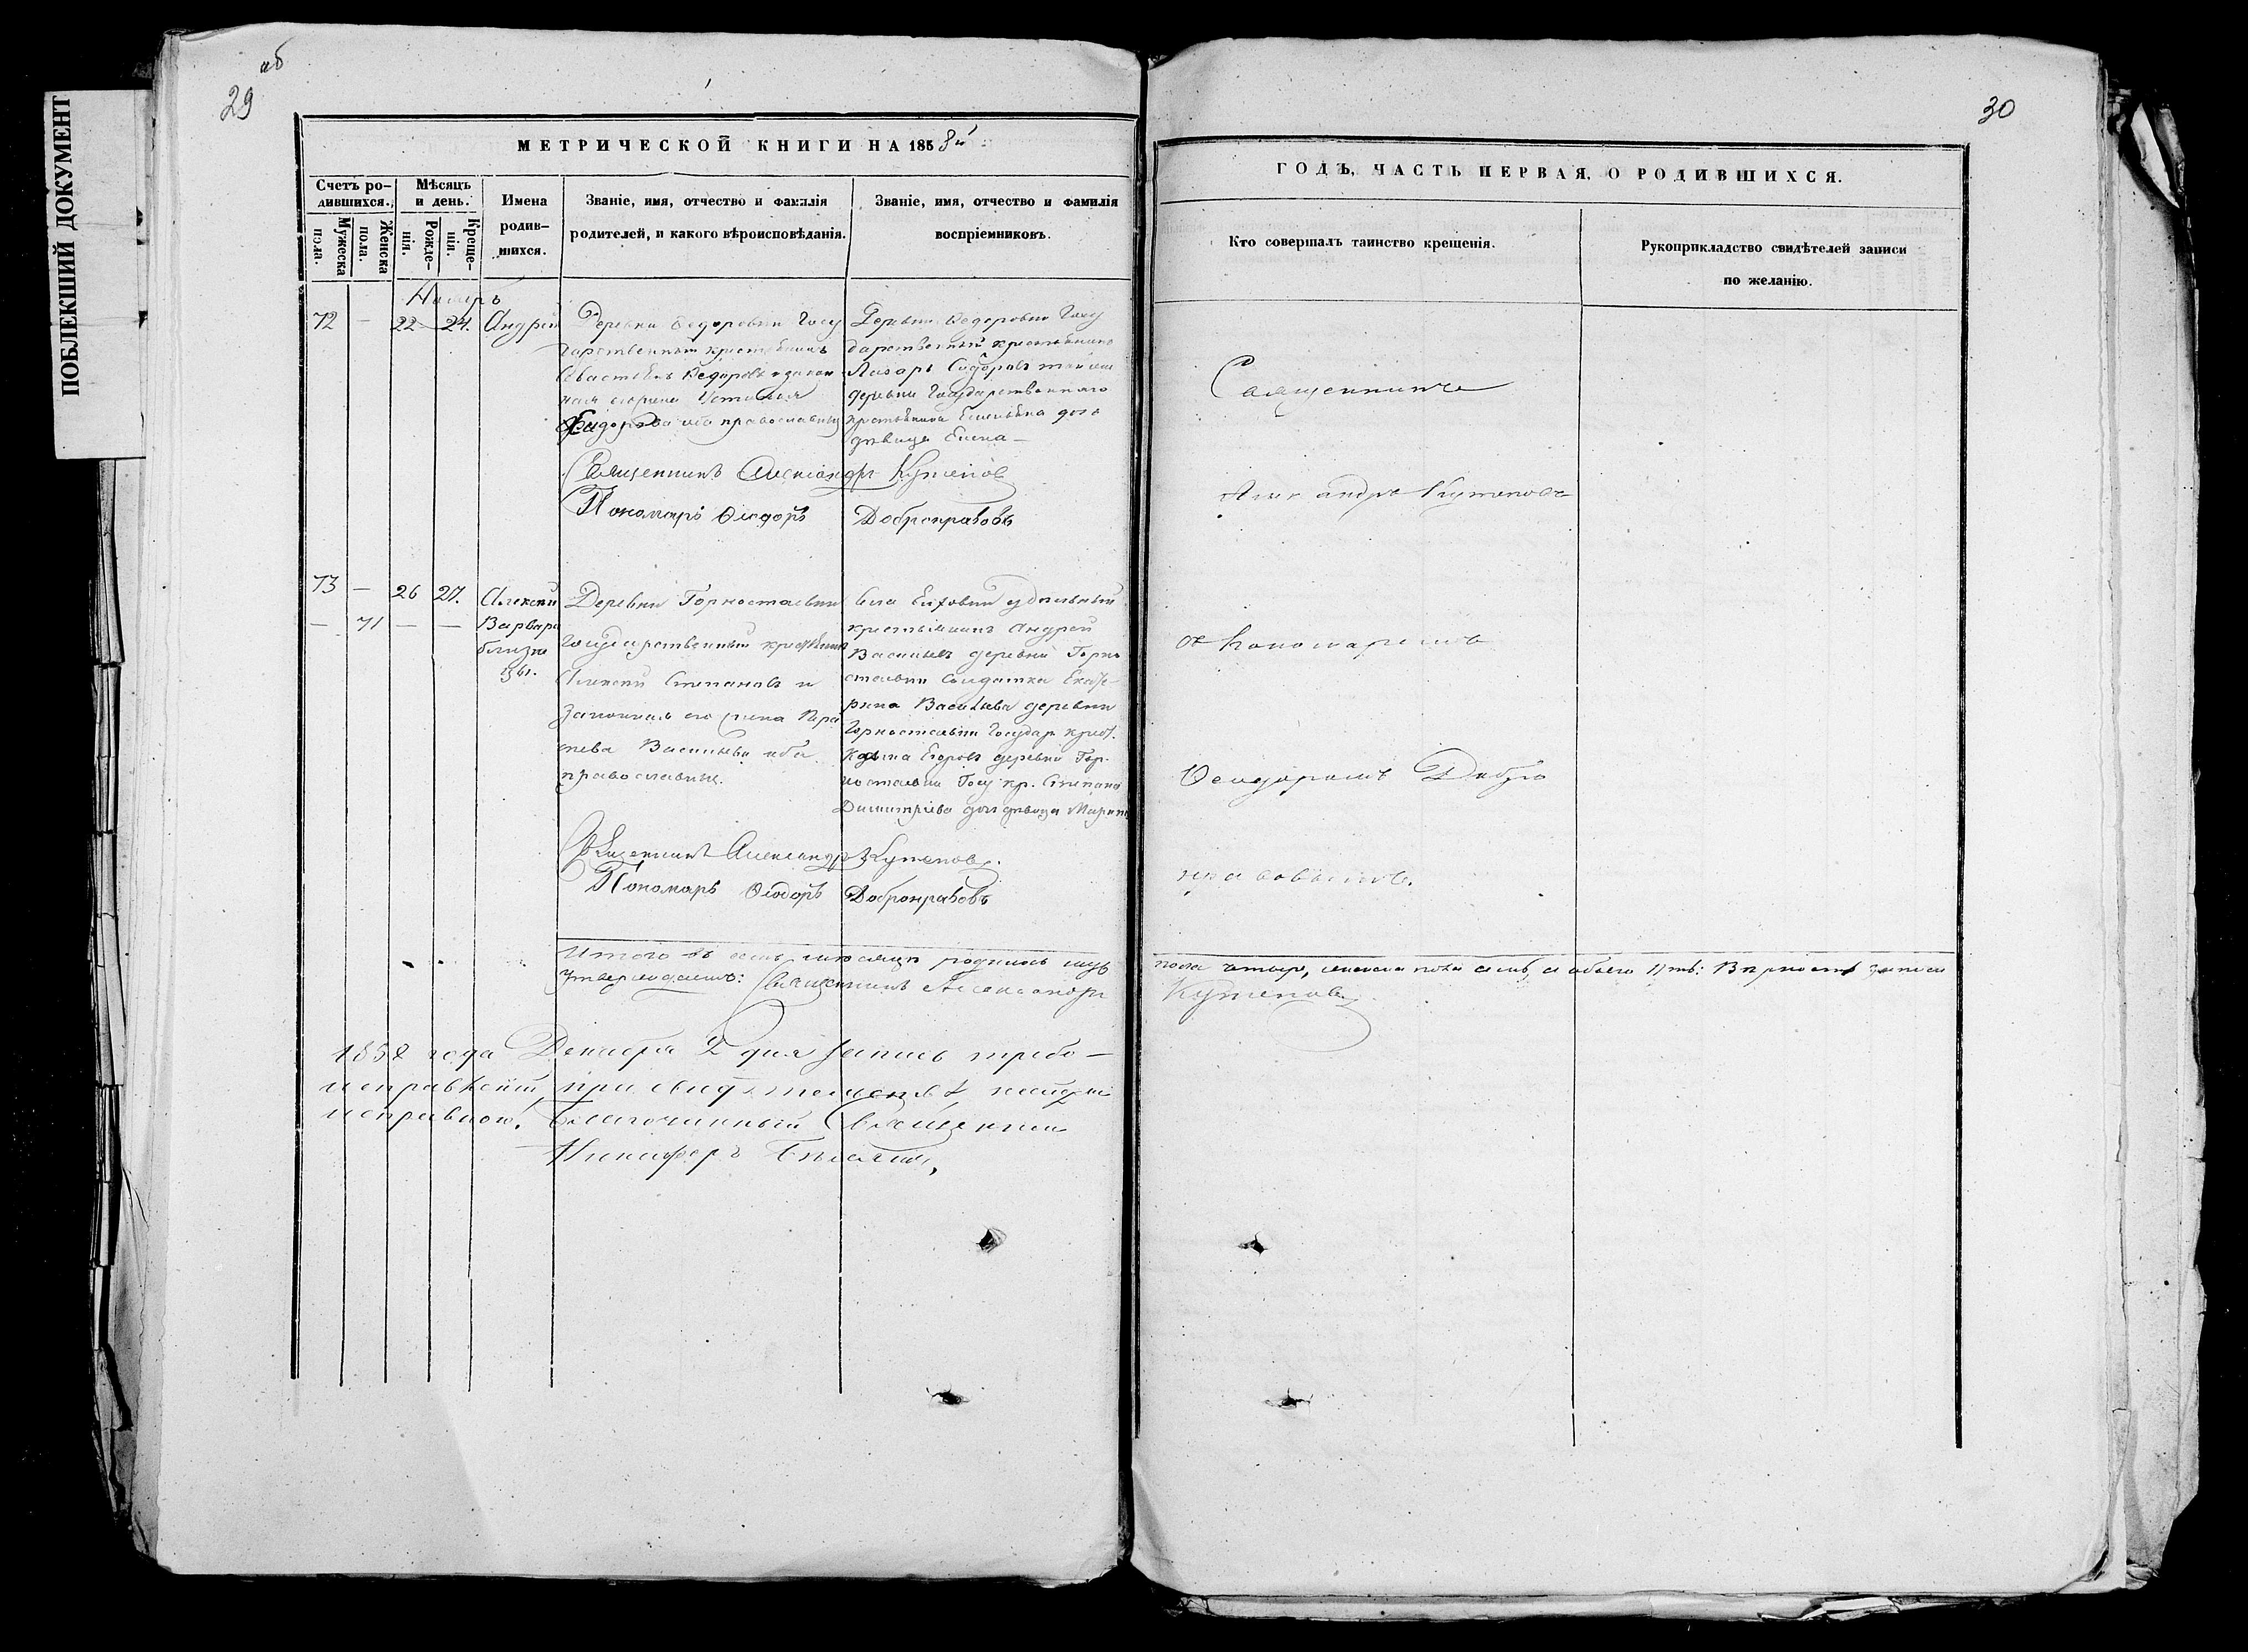 ПОБЛЕКШИЙ ДОКУМЕНТ
29 об
МЕТРИЧЕСКОЙ КНИГИ НА 1858й
Счетъ ро-
дившихся.
Мужеска
пола.
Женска
пола.
Мѣсяцъ
и день.
Рожде-
нія.
Креще-
нія.
Имена
родив-
шихся.
Званіе, имя, отчество и фамилія
родителей, и какого вѣроисповѣданія.
Званіе, имя, отчество и фамилія
воспріемниковъ.
Ноябрь
72 — 22 — 24. Андрей
Деревни Ѳедоровки Госу
дарственный крестьянинъ
Севастьянъ Ѳедоровъ и закон
ная его жена Устинья
Сидорова оба православны
Деревни Ѳедоровки Госу
дарственный крестьянинъ
Лазарь Сидоровъ той же
деревни Государственнаго
крестьянина Емельяна дочь
дѣвица Елена —
Священникъ Александръ Кутеповъ
Пономарь Ѳеодоръ Добронравовъ
73 — 26 27. Алексѣй
— 71 — — Варвара
близне
цы.
Деревни Горностаевки
Государственный крестьянинъ
Алексѣй Степановъ и
законная его жена Пара
скева Васильева оба
православные.
Села Елховки удѣльный
крестьянинъ Андрей
Васильевъ деревни Горно
стаевки солдатка Екате
рина Васильева деревни
Горностаевки Государ. крест.
Козьма Егоровъ деревни Гор-
ностаевки Госу. кр. Степана
Димитріева дочь дѣвица Марина
Священникъ Александръ Кутеповъ.
Пономарь Ѳеодоръ Добронравовъ
Итого въ семъ мѣсяцѣ родилось муж
утверждаемъ: Священникъ Александръ
1858 года Декабря 2 дня запись требо-
исправленій, при свидѣтельствѣ, найдена
исправною. Благочинный Священникъ
Никифоръ
30
ГОДЪ, ЧАСТЬ ПЕРВАЯ, О РОДИВШИХСЯ.
Кто совершалъ таинство крещенія.
Рукоприкладство свидѣтелей записи
по желанію.
Священникъ
Александръ Кутеповъ
съ Пономаремъ
Ѳеодоромъ Добро
нравовымъ.
пола четыре, женска пола семь, а обоего 11ть: Вѣрность записи
Кутеповъ